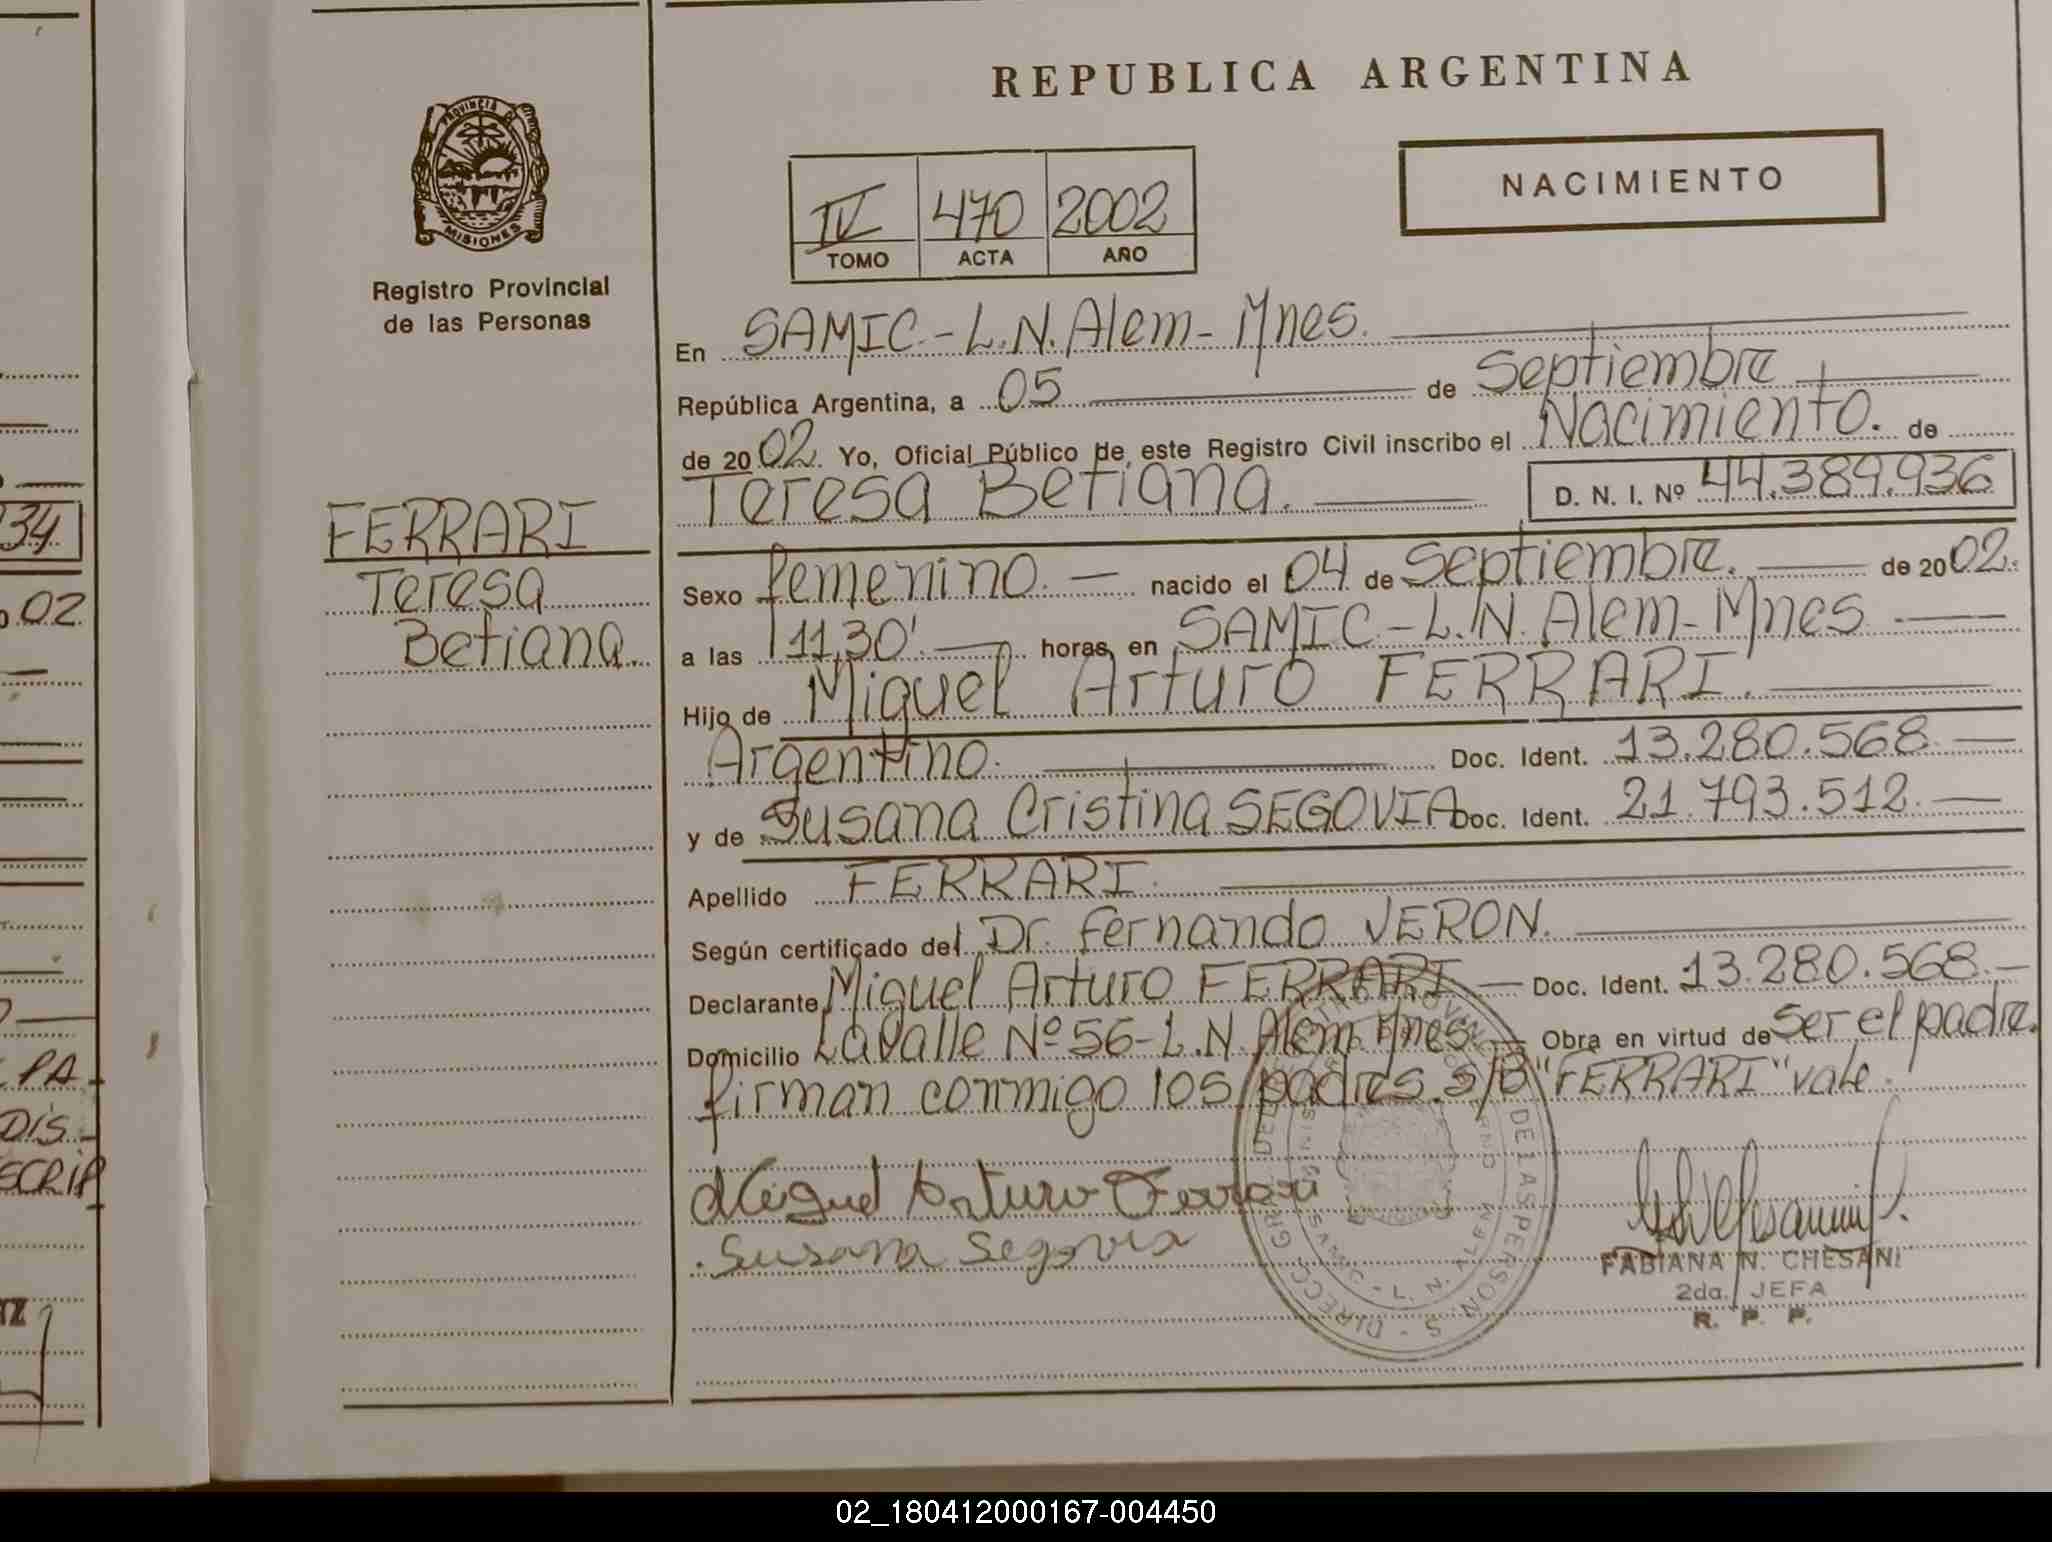 REPUBLICA ARGENTINA
PROVINCIA DE
MISIONES
Registro Provincial
de las Personas
IV 470 2002
TOMO ACTA AÑO
NACIMIENTO
En SAMIC.-L.N.Alem-Mnes.
República Argentina, a 05 de Septiembre
de 2002. Yo, Oficial Público de este Registro Civil inscribo el Nacimiento. de
Teresa Betiana. D. N. I. Nº 44.389.936
FERRARI
Teresa
Betiana.
Sexo femenino. nacido el 04 de Septiembre. de 2002.
a las 11,30'. horas en SAMIC-L.N. Alem-Mnes
Hijo de Miguel Arturo FERRARI.
Argentino. Doc. Ident. 13.280.568.
y de Susana Cristina SEGOVIA Doc. Ident. 21.793.512.
Apellido FERRARI.
Según certificado del Dr. Fernando VERON.
Declarante Miguel Arturo FERRARI Doc. Ident. 13.280.568.
Domicilio Lavalle Nº 56-L.N. Alem Mnes. Obra en virtud de Ser el padre.
firman conmigo los padres. S/B "FERRARI" vale.
Miguel Arturo Ferrari
Susana Segovia
FABIANA N. CHESANI
2da. JEFA
R. P. P.
34
02
PA
DIS
SCRIP
02_180412000167-004450